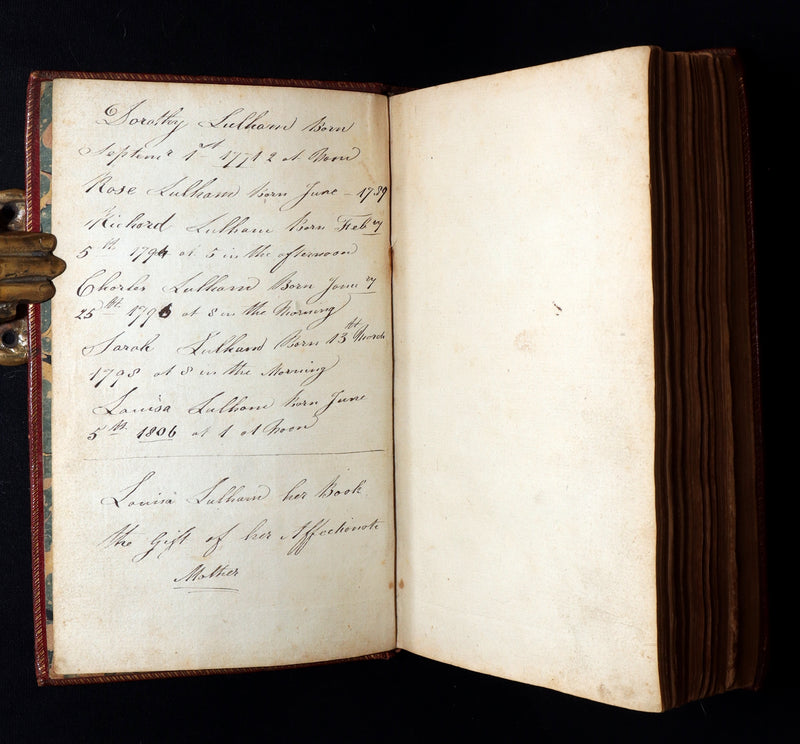 Dorothy Lulham Born
Septemr 1st 1771 2 at Noon
Rose Lulham Born June - 1789
Richard Lulham Born Feby
5th 1794 at 5 in the afternoon
Charles Lulham Born Jany
25th 1796 at 8 in the Morning
Sarah Lulham Born 13th March
1798 at 8 in the Morning
Louisa Lulham Born June
5th 1806 at 1 at Noon
Louisa Lulham her Book
the Gift of her Affectionate
Mother